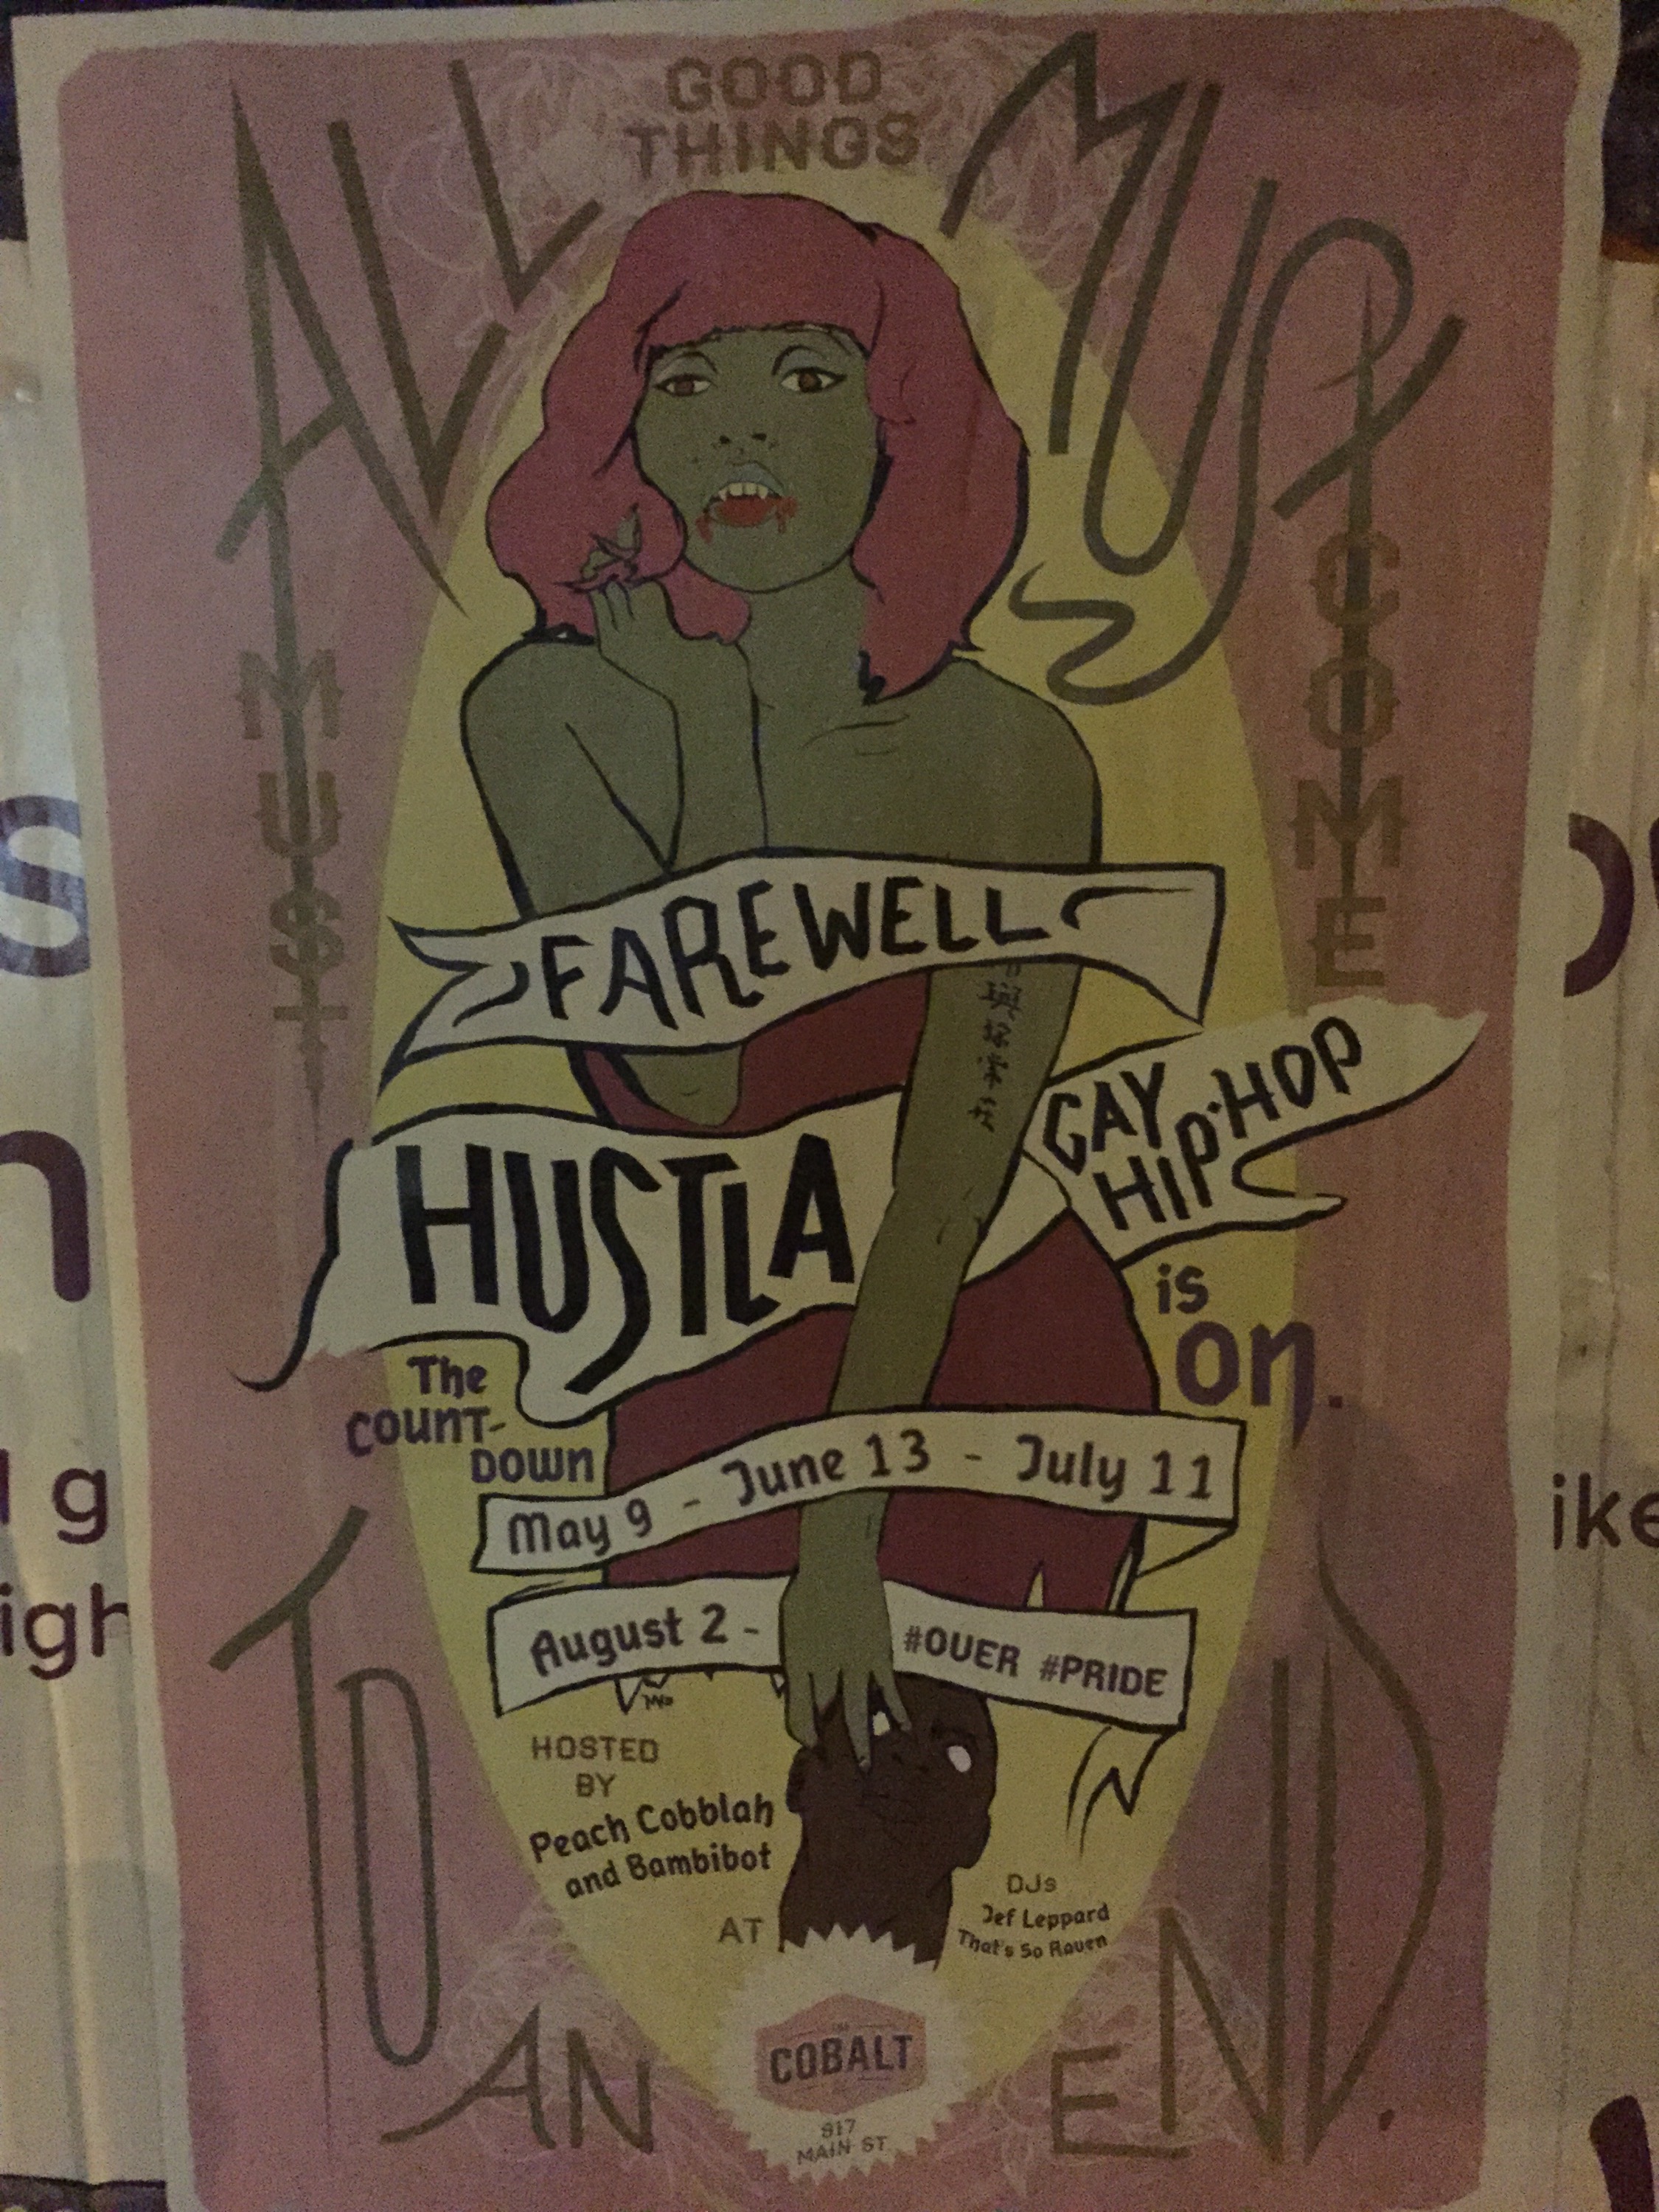 GOOD
THINGS
ALL
MUST
MUST
COME
FAREWELL
HUSTLA
GAY
HIP-HOP
is
on.
The
COUNT-
DOWN
May 9 - June 13 - July 11
August 2 -
#OVER #PRIDE
HOSTED
BY
Peach Cobblah
and Bambibot
AT
DJs
Jef Leppard
That's So Raven
TO
AN
END
THE
COBALT
917
MAIN ST
s
n
g
igh
ike